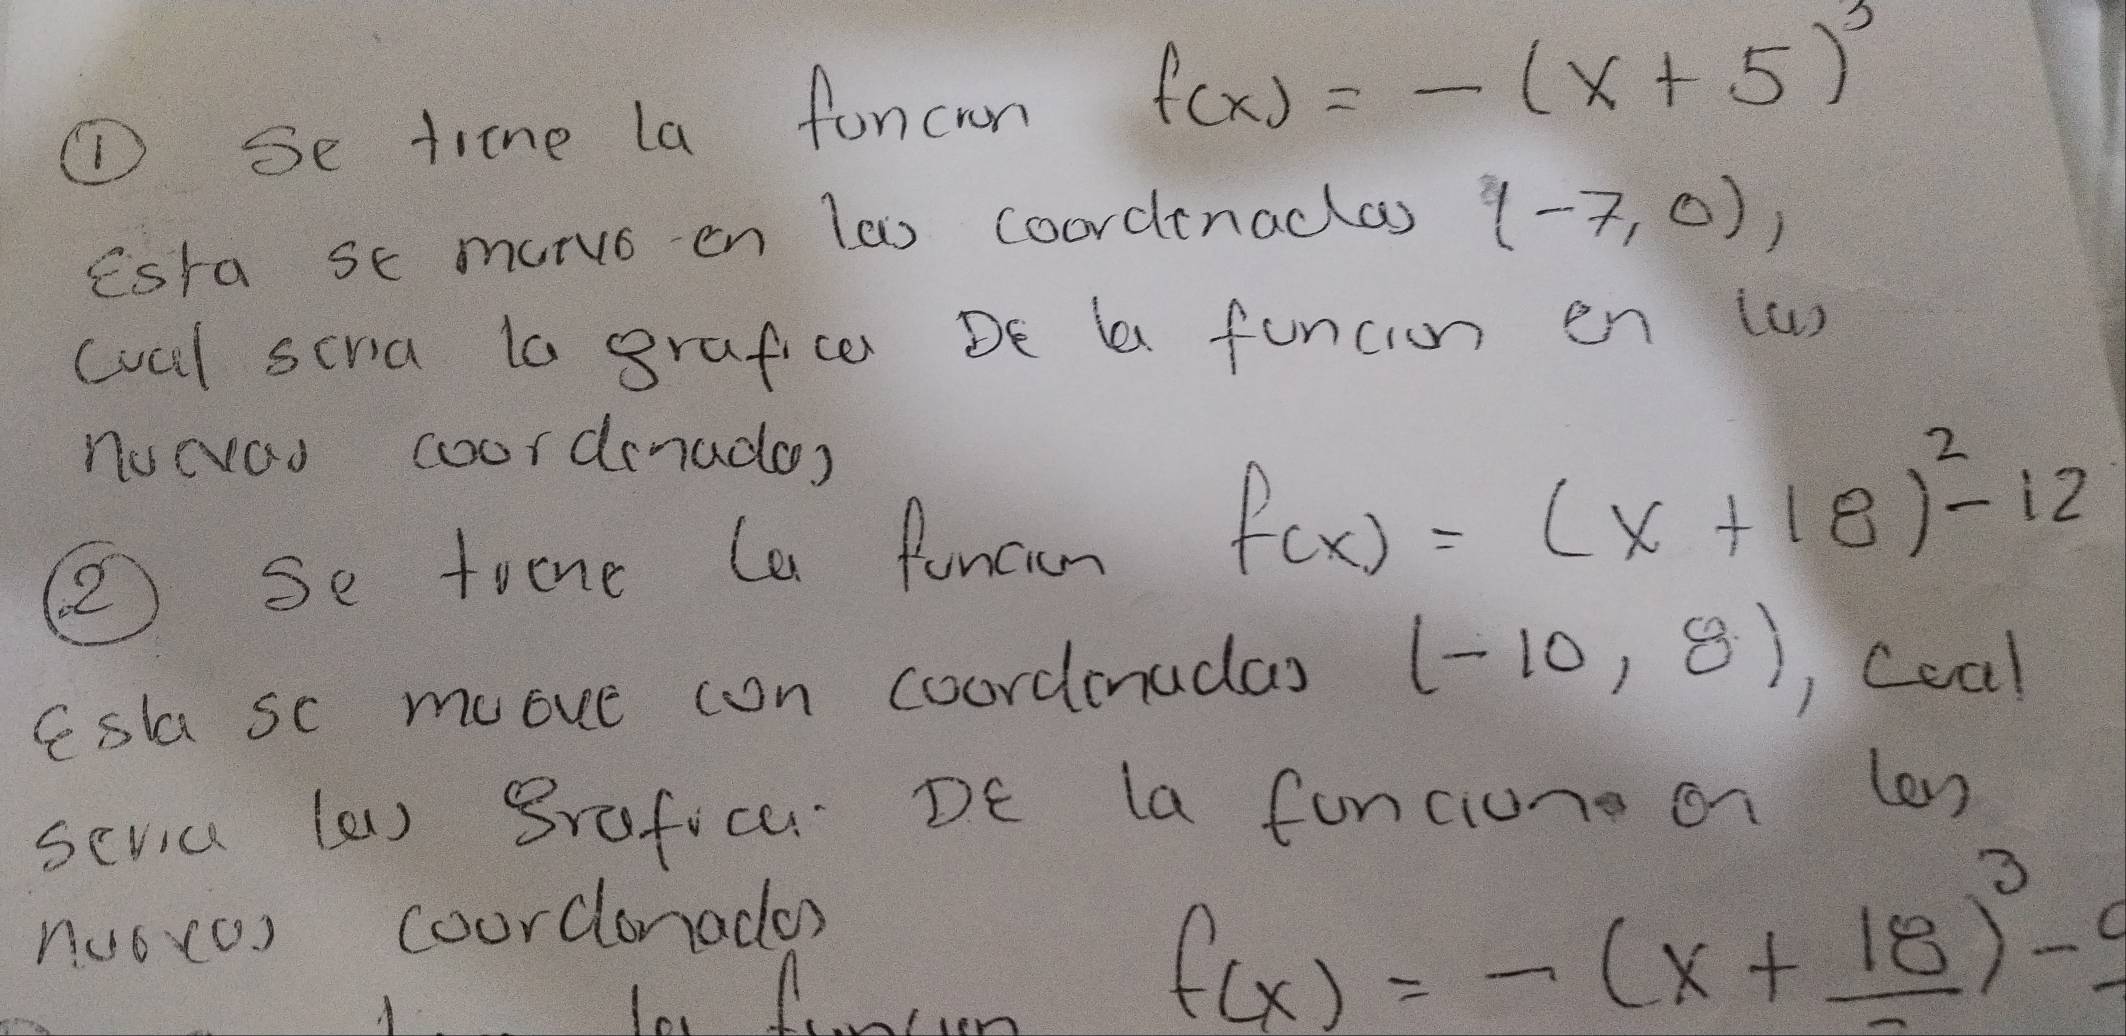 ① Se tiene la funcion f(x) = - (x + 5)³
Esta se muevo en las coordenadas (-7, 0),
cual seria la grafica DE la funcion en las
nuevas coordenadas
② Se tiene la funcion f(x) = (x + 18)² - 12
Esta se mueve con coordenadas (-10, 8), cual
seria las grafica DE la funcion en las
nuevas coordenadas
la funcion f(x) = - (x + 18)³ -